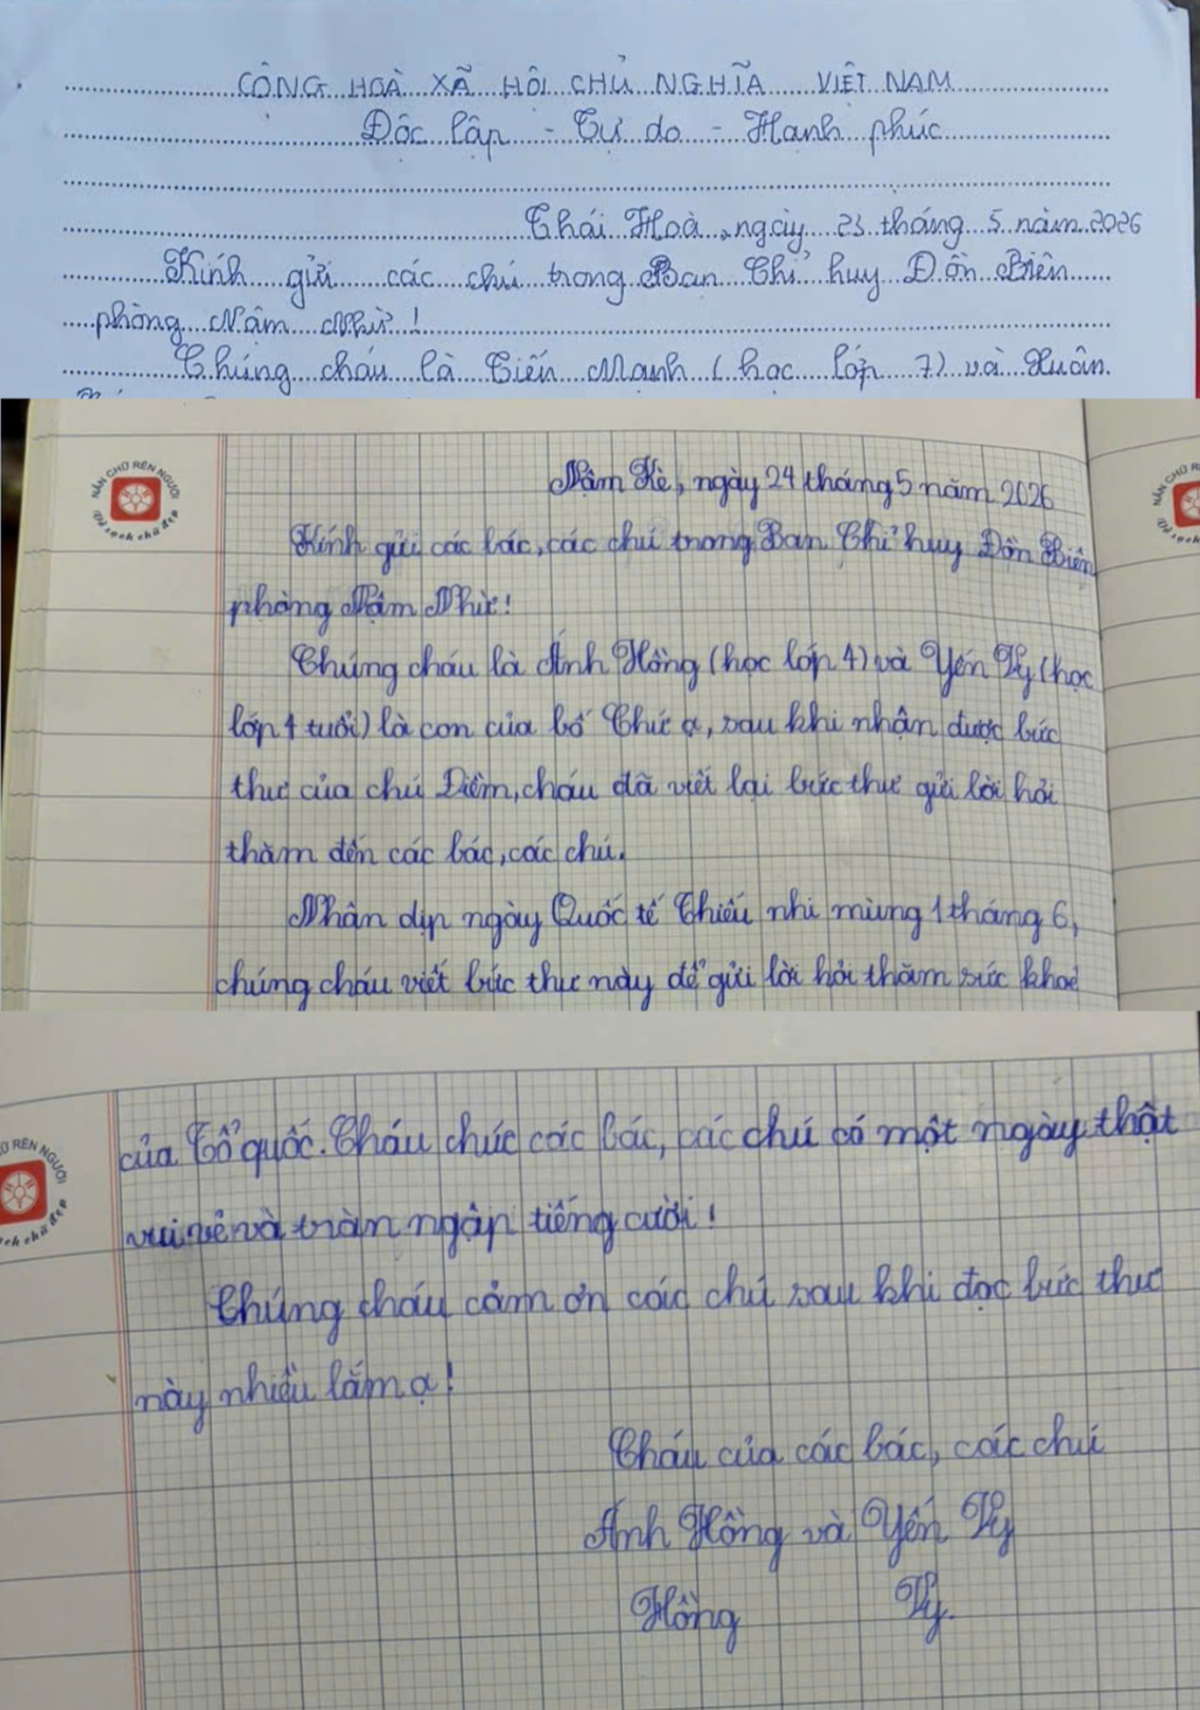 CỘNG HOÀ XÃ HỘI CHỦ NGHĨA VIỆT NAM
Độc lập - Tự do - Hạnh phúc
Thái Hoà, ngày 23 tháng 5 năm 2026
Kính gửi các chú trong Ban Chỉ huy Đồn Biên
phòng Nậm Nhừ!
Chúng cháu là Tiến Mạnh (học lớp 7) và Xuân
NẮN CHỮ RÈN NGƯỜI
Vở sạch chữ đẹp
Nậm Kè, ngày 24 tháng 5 năm 2026
Kính gửi các bác, các chú trong Ban Chỉ huy Đồn Biên
phòng Nậm Nhừ!
Chúng cháu là Ánh Hồng (học lớp 4) và Yến Vy (học
lớp 4 tuổi) là con của bố Chức ạ, sau khi nhận được bức
thư của chú Diềm, cháu đã viết lại bức thư gửi lời hỏi
thăm đến các bác, các chú.
Nhân dịp ngày Quốc tế Thiếu nhi mùng 1 tháng 6,
chúng cháu viết bức thư này để gửi lời hỏi thăm sức khoẻ
của Tổ quốc. Cháu chúc các bác, các chú có một ngày thật
vui vẻ và tràn ngập tiếng cười!
Chúng cháu cảm ơn các chú sau khi đọc bức thư
này nhiều lắm ạ!
Cháu của các bác, các chú
Ánh Hồng và Yến Vy
Hồng Vy.